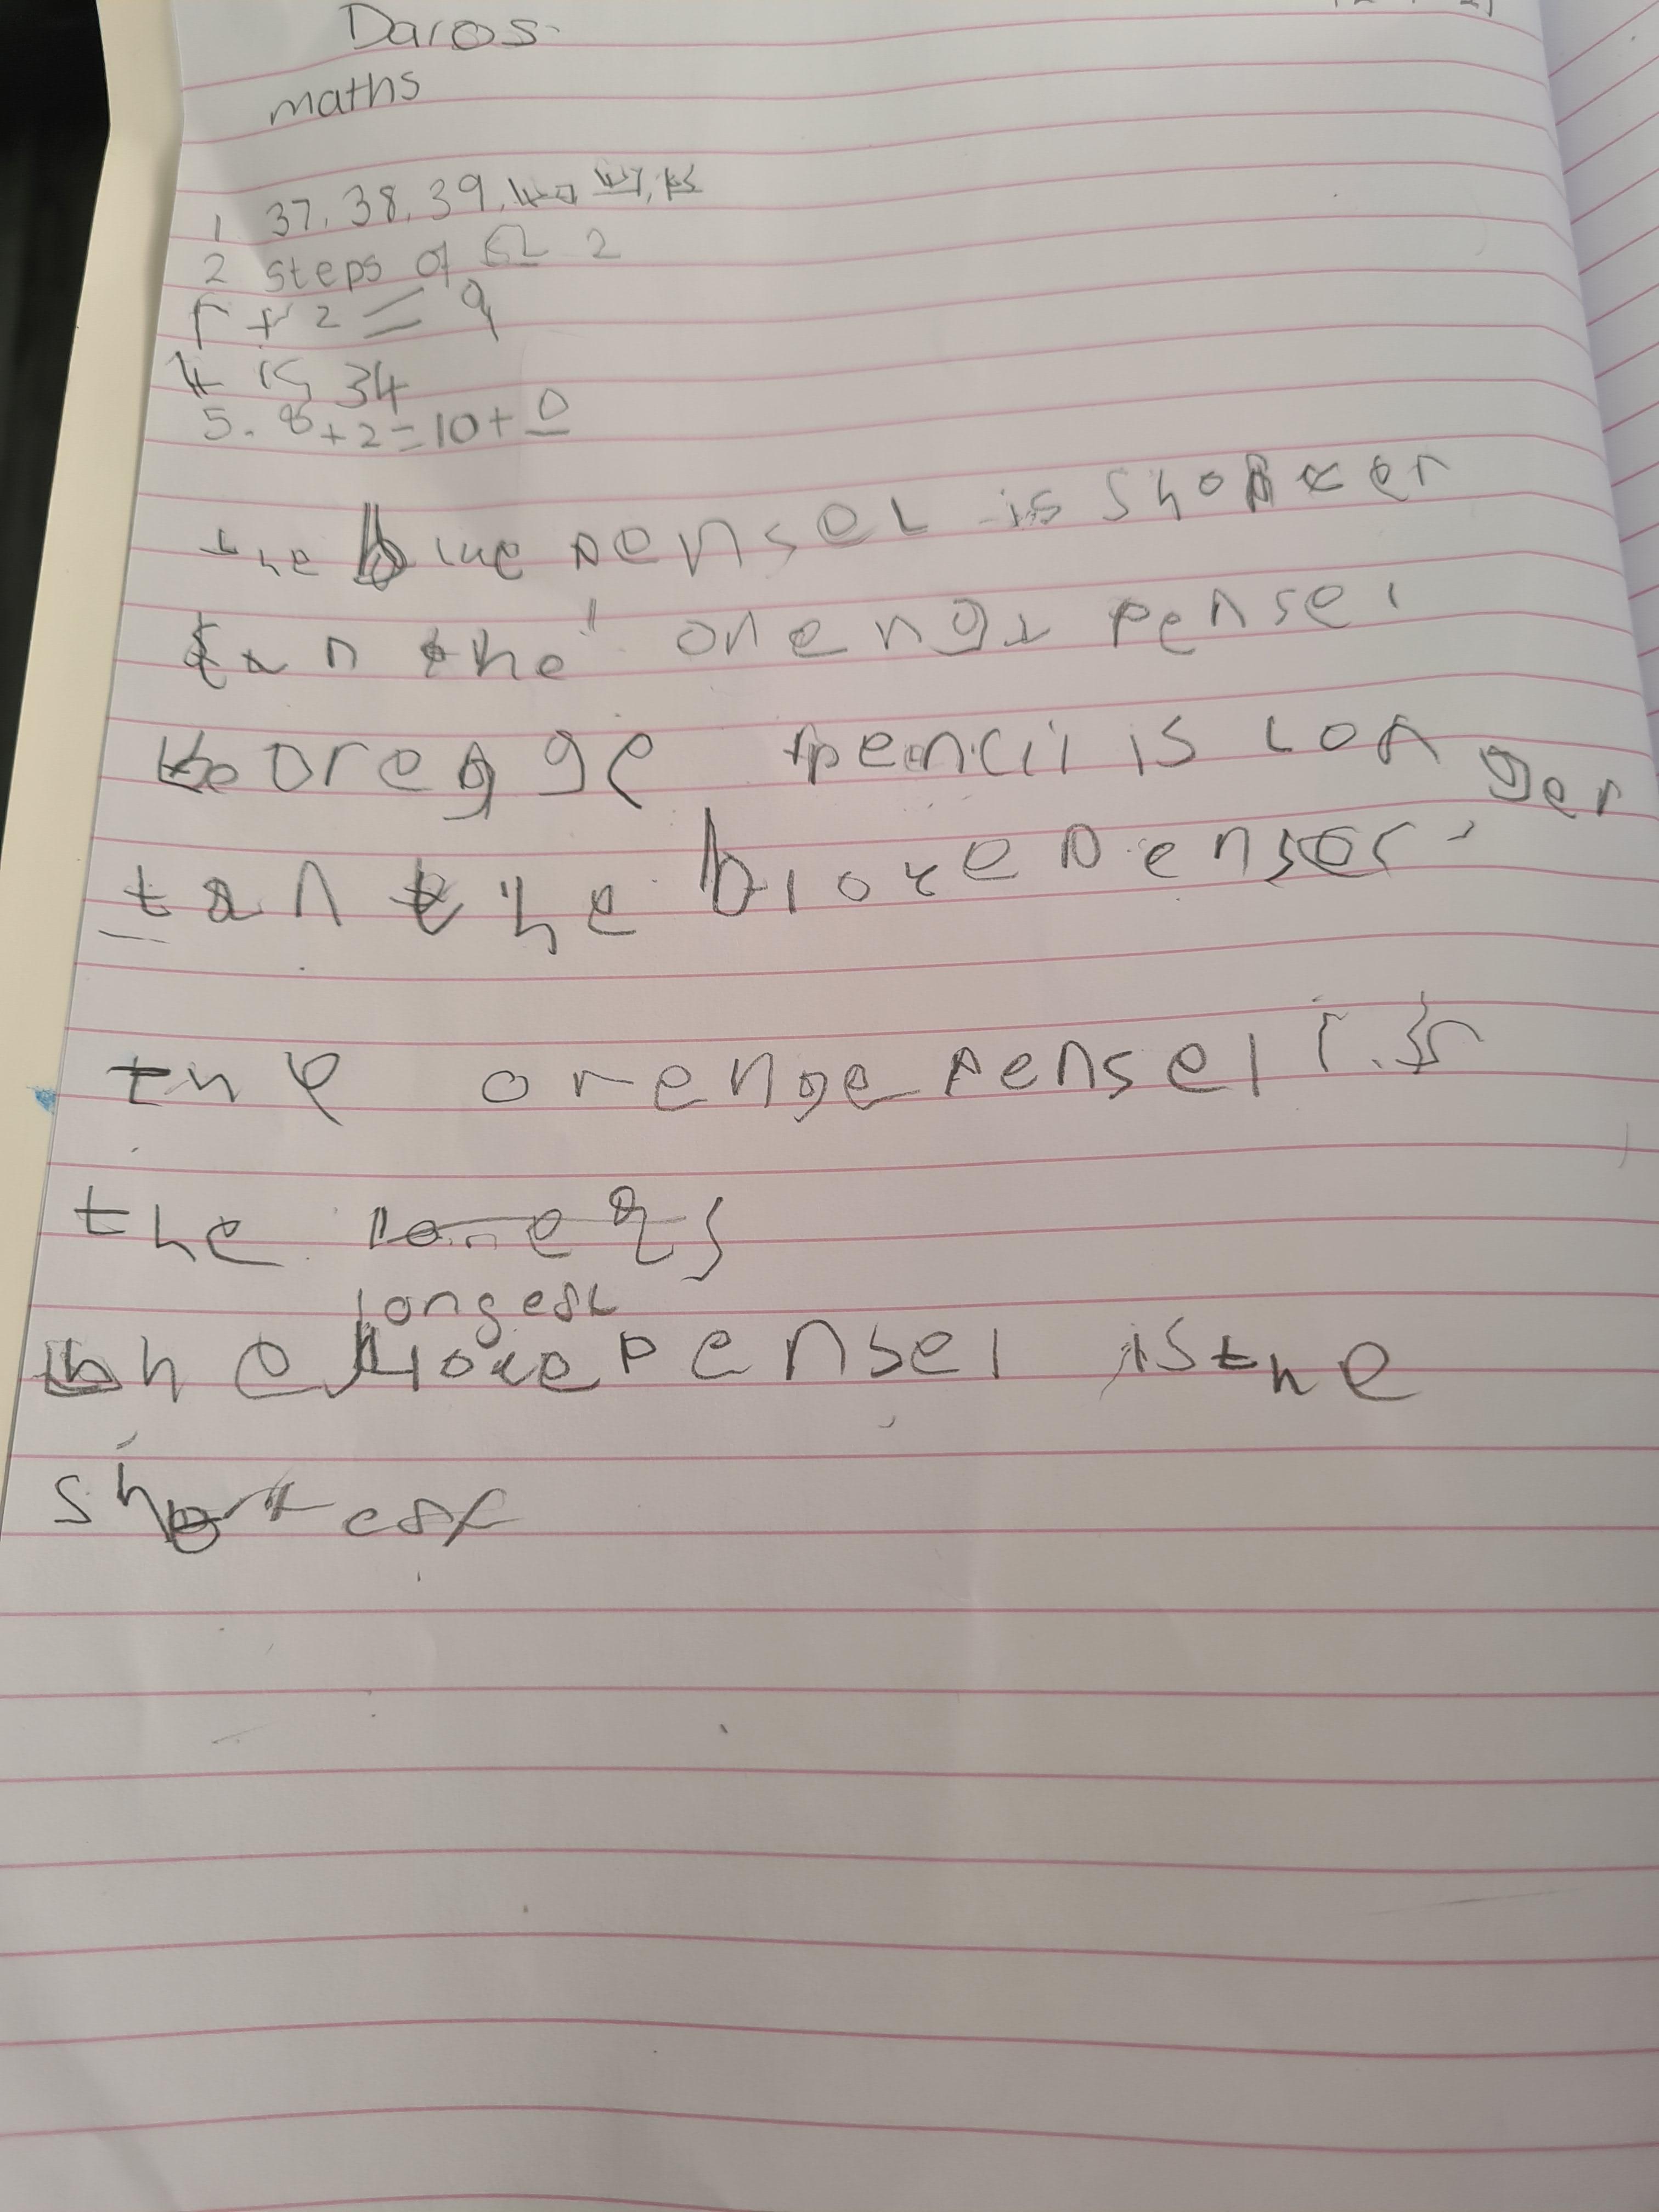 Daros
maths
1 37, 38, 39,
2 steps of 2
+ 2 = 9
4 is 34
5. 8+2=10+0
the blue pensel is shorter
tan the orengx pensel
the oregge pencil is longer
tan the bloue penser
the orenge pensel is
the
longest
the bloue pensel is the
shortest